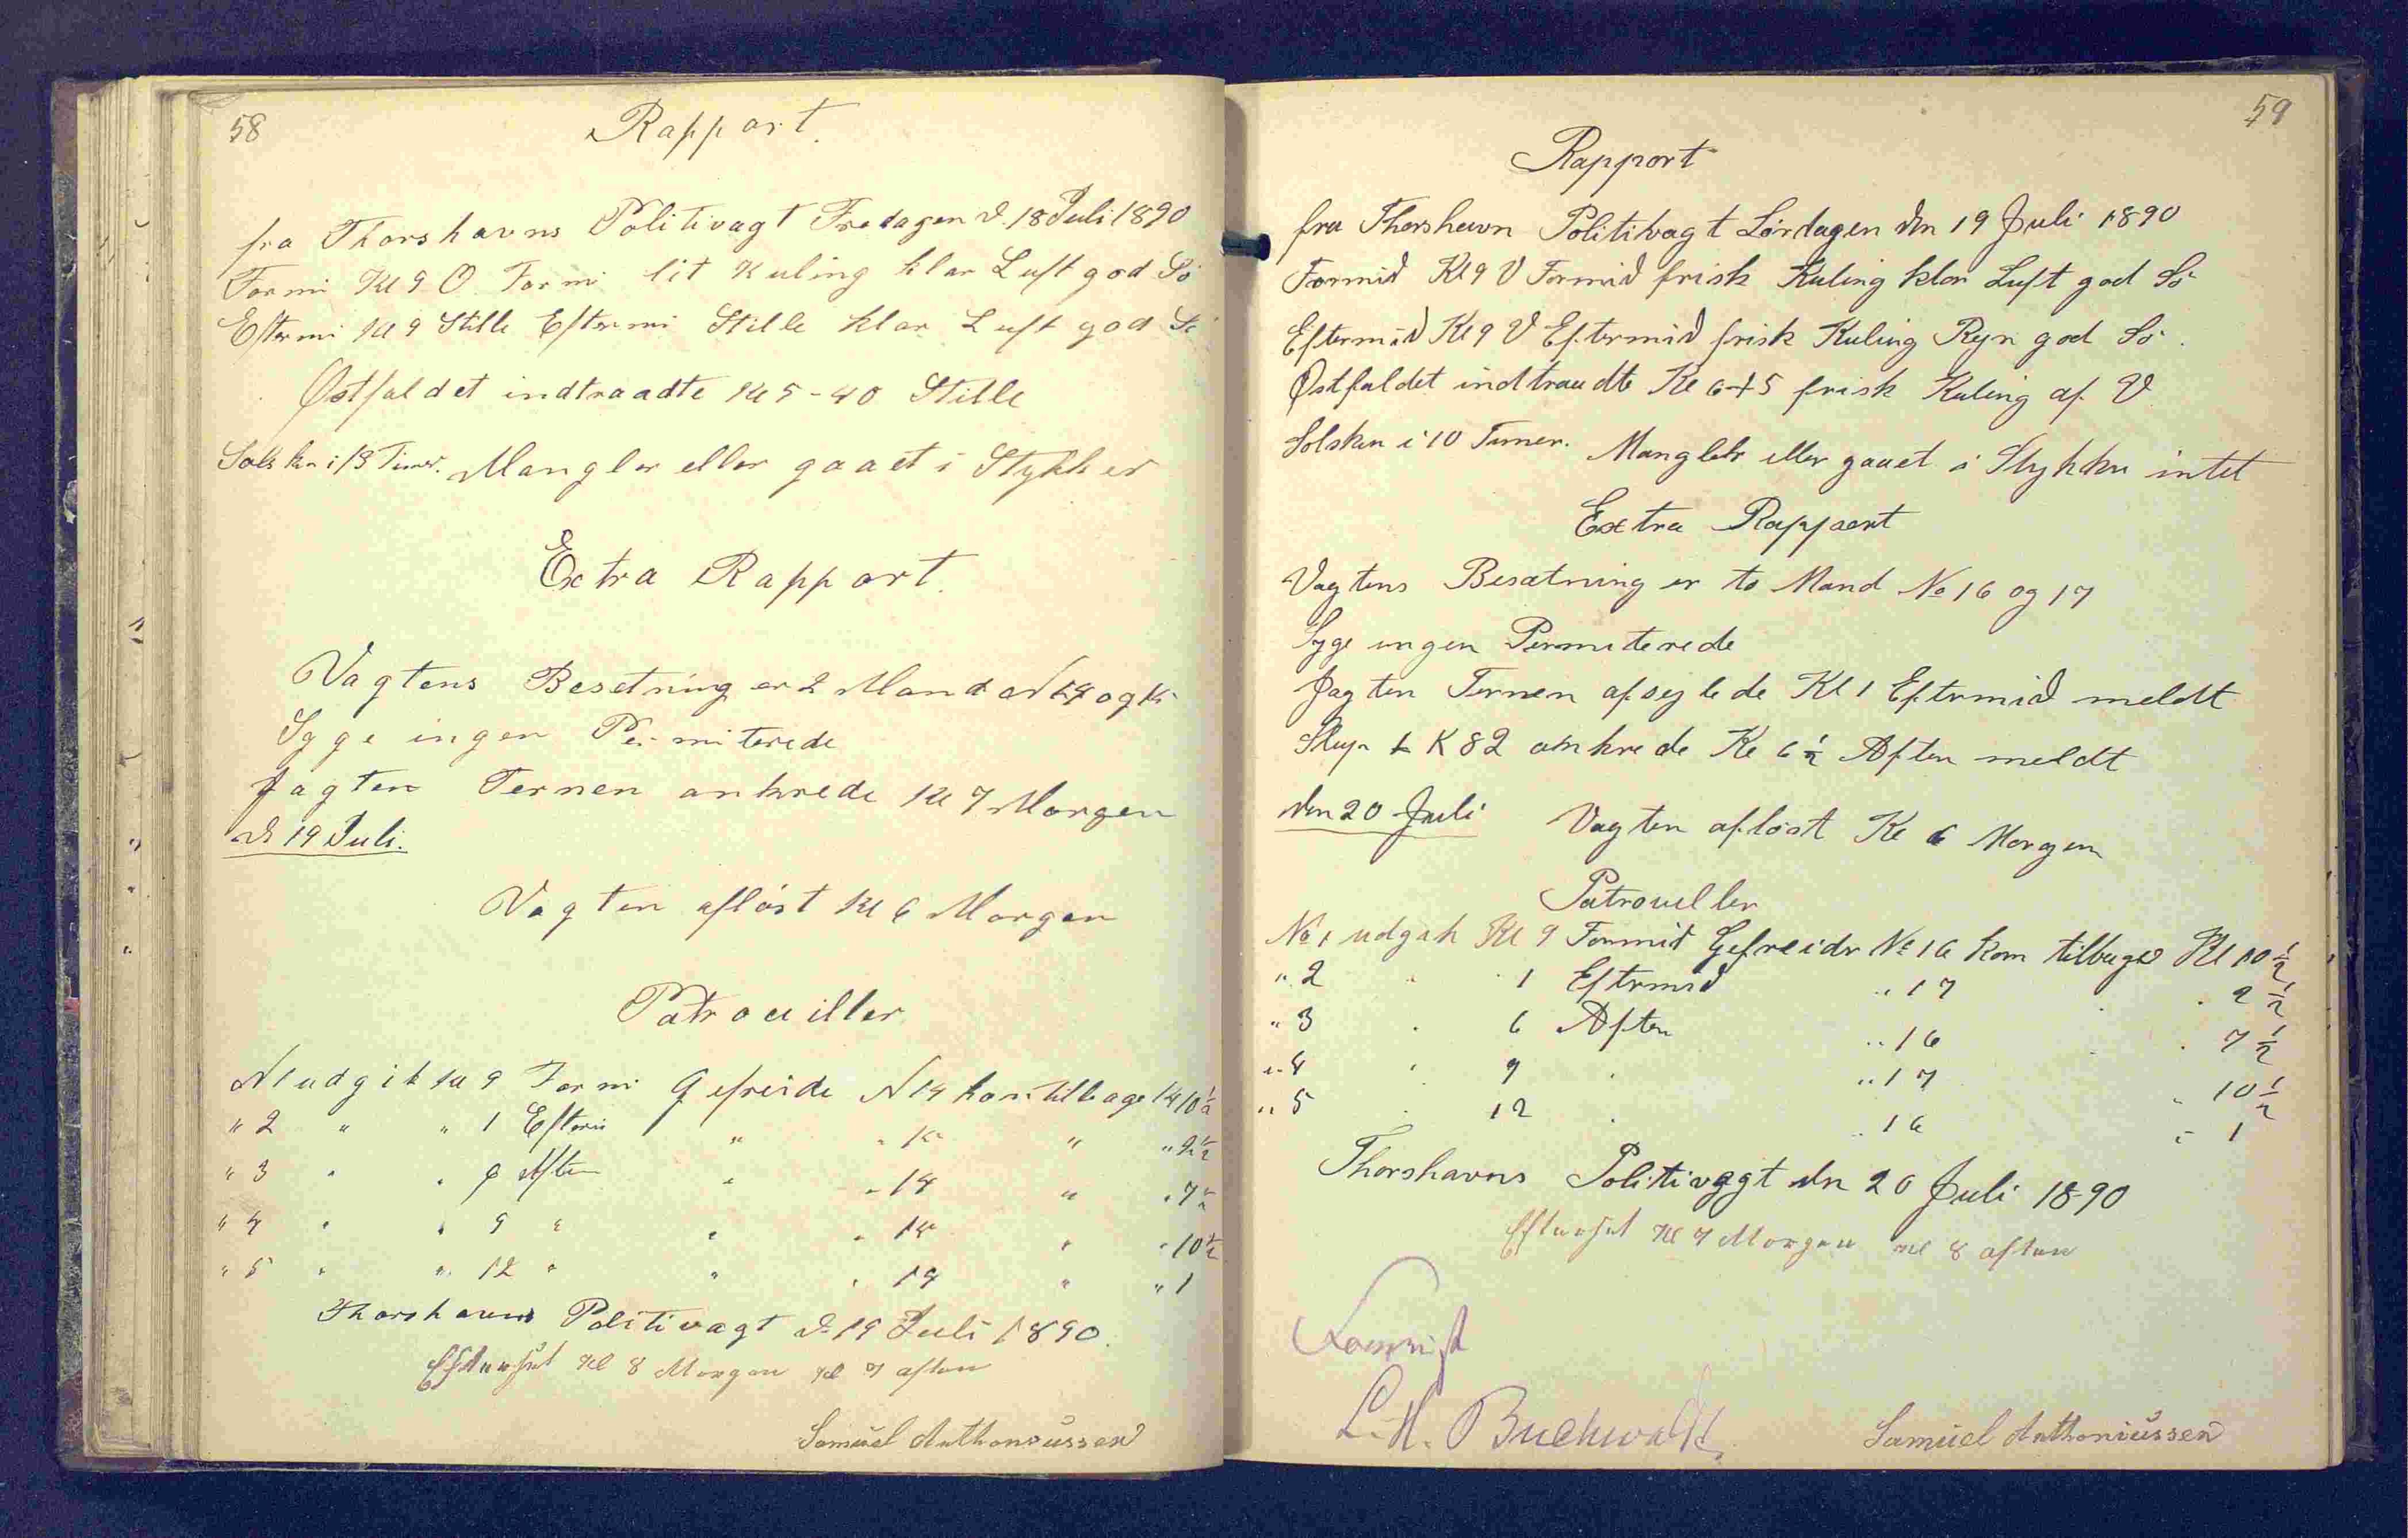 58
Rapport.
fra Thorshavns Politivagt Fredagen d. 18 Juli 1890
Formi Kl 9 O Formi lit Kuling klar Luft god Sö
Eftermi Kl 9 Stille Eftermi Stille klar Luft god Sö
Østfaldet indtraadte Kl 5-40 Stille
Solskin i 13 Timer. Mangler eller gaaet i Stykker
Extra Rapport.
Vagtens Besetning er 2 Mand N 14 og 15
Syge ingen Permiterede
Jagten Ternen ankrede Kl 7 Morgen
d 19 Juli.
Vagten aflöst Kl 6 Morgen
Patrouiller
N 1 udgik Kl 9 Formi Gefreide N 14 kom tilbage Kl 10 1/2
" 2 " " 1 Eftermi " " 15 " " 2 1/2
" 3 " " 6 Aften " " 14 " " 7 1/2
" 4 " " 9 " " " 15 " " 10 1/2
" 5 " " 12 " " " 14 " " 1
Thorshavns Politivagt d. 19 Juli 1890.
Kl 8 Morgen Kl 7 aften
Samuel Anthoniussen
59
Rapport
fra Thorshavn Politivagt Lördagen den 19 Juli 1890
Formid Kl 9 V Formid frisk Kuling klar Luft god Sö
Eftermid Kl 9 V Eftermid frisk Kuling Ryn god Sö.
Østfaldet indtraadte Kl 6+5 frisk Kuling af V
Solskin i 10 Timer. Mangler eller gaaet i Stykker intet
Extra Rapport
Vagtens Besætning er to Mand No 16 og 17
Syge ingen Permiterede
Jagten Ternen afseglede Kl 1 Eftermid meldt
Slup K 82 ankrede Kl 6 1/2 Aften meldt
den 20 Juli Vagten aflöst Kl 6 Morgen
Patrouiller
No 1 udgik Kl 9 Formid Gefreider No 16 kom tilbage Kl 10 1/2
" 2 " 1 Eftermid " 17 " 2 1/2
" 3 " 6 Aften " 16 " 7 1/2
" 4 " 9 " " 17 " 10 1/2
" 5 " 12 " " 16 " 1
Thorshavns Politivagt den 20 Juli 1890
Kl 7 Morgen Kl 8 aften
L. H. Buchwaldt.
Samuel Anthoniussen